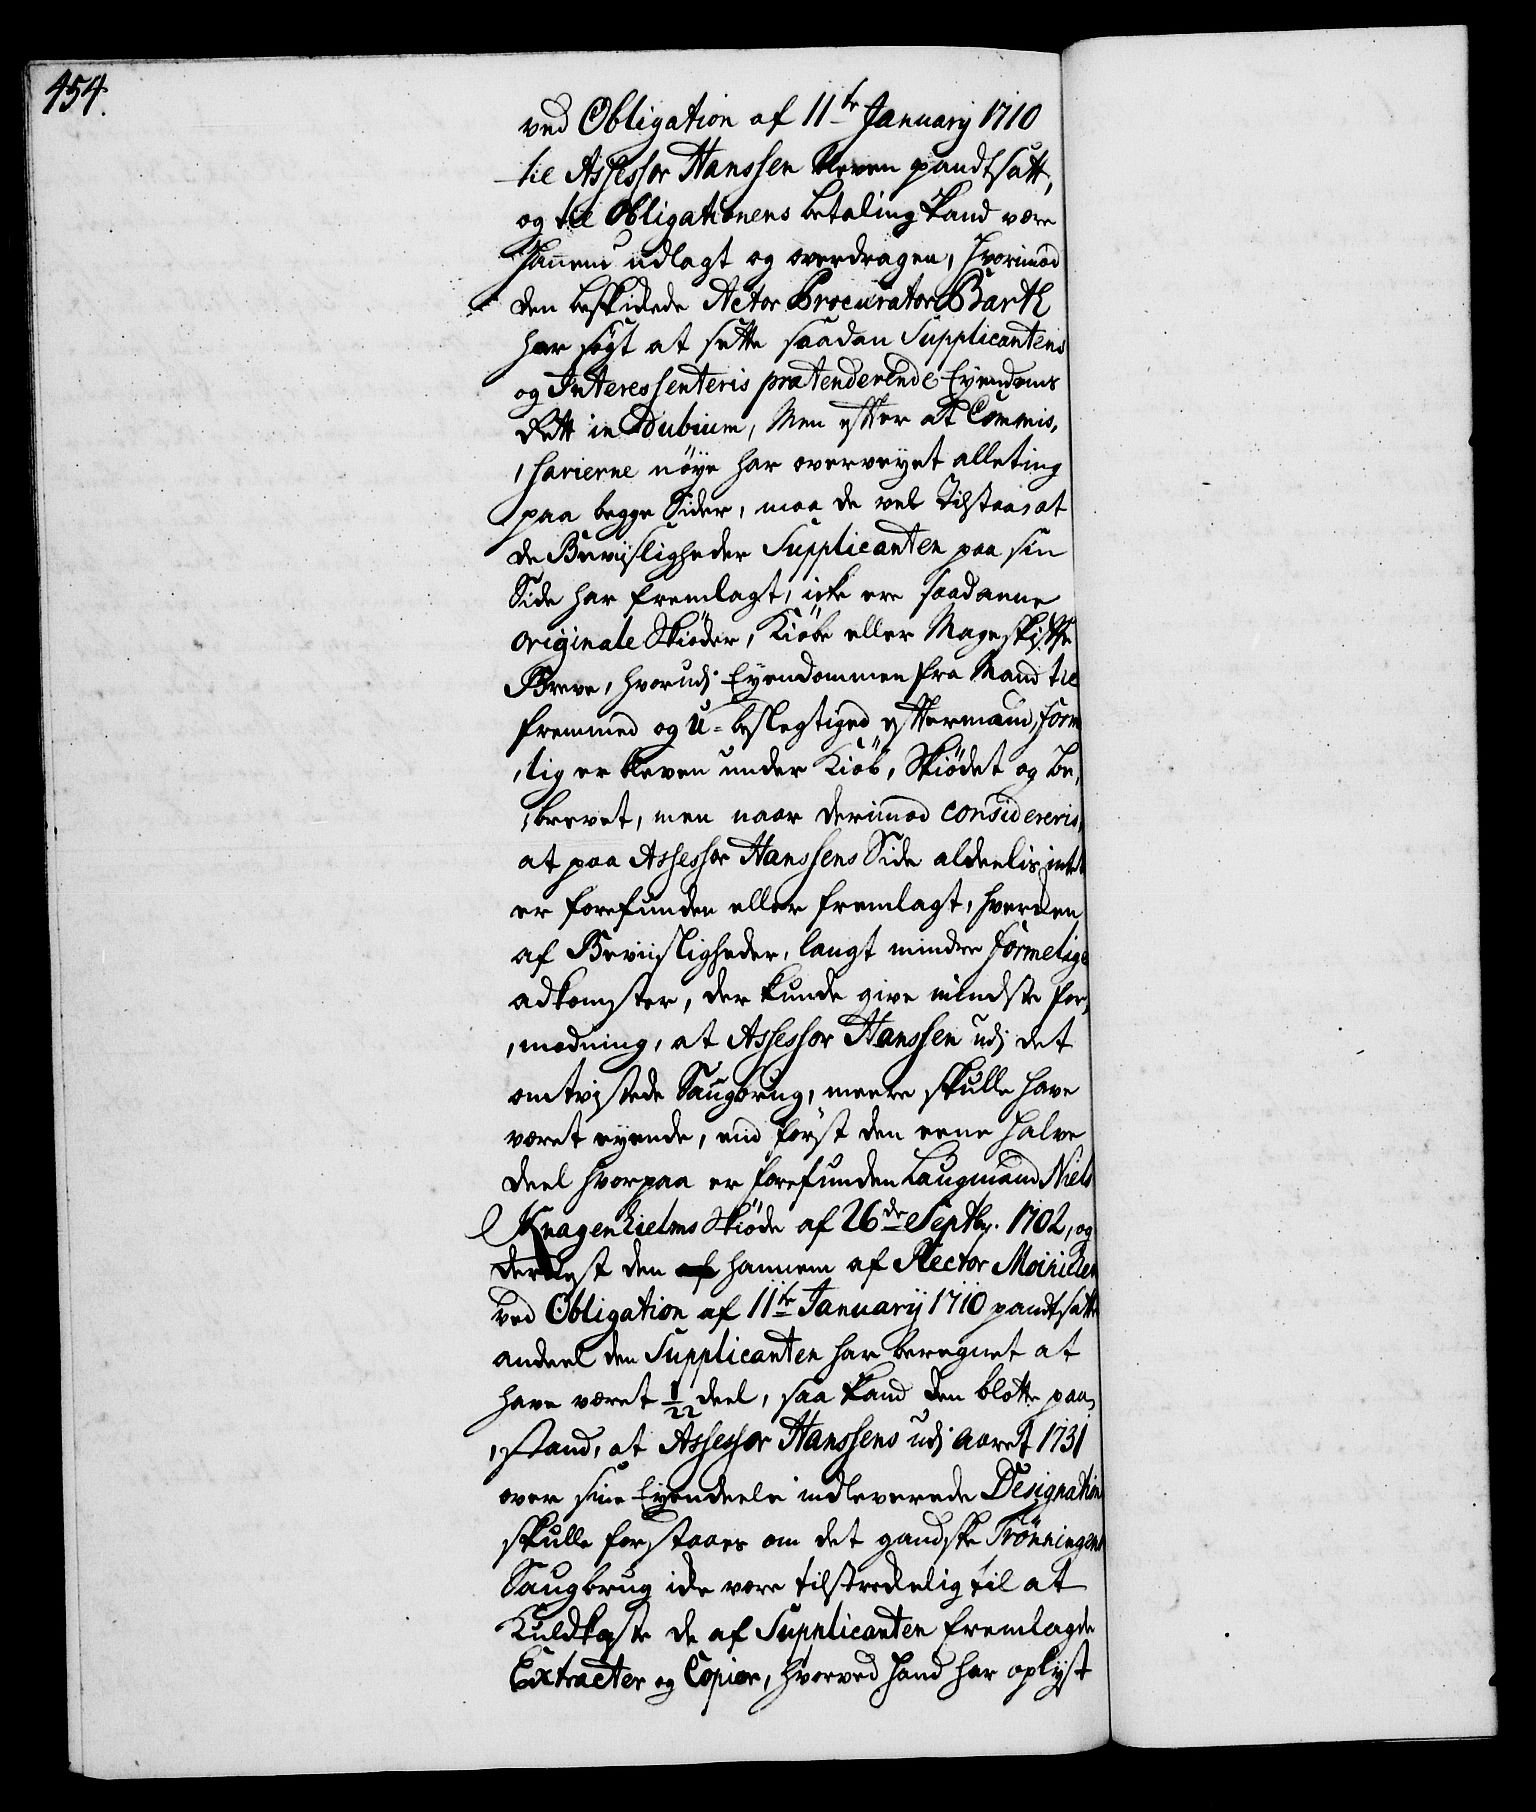 454.
ved Obligation af 11te Januarij 1710
til Assessor Hanssen bleven pandtsatt,
og til Obligationens betaling kand være
hannem udlagt og overdragen, hvorimod
den beskikede Actor Procurator Barth
har søgt at sette saadan Supplicantens
og Interessenteris prætenderende Eyendoms
Rett in Dubium, Men efter at Commis,
,sarierne nöye har overveyet alleting
paa begge Sider, maa de vel tilstaa, at
de Beviisligheder Supplicanten paa sin
Side har fremlagt, icke ere saadanne
originale Skiöder, Kiöbe eller Mageskifte
Breve, hvorudj Eyendommen fra Mand til
fremmed og U-beslegtiged eftermand, form
,lig er bleven under Kiöb, Skiödet og be,
,brevet, men naar derimod considereris,
at paa Assessor Hanssens Side aldeelis intet
er forefunden eller fremlagt, hverken
af Beviisligheder, langt mindre formelige
adkomster, der kunde give mindste for,
,modning, at Assessor Hanssen udj det
omtvistede Saugbrug, meere skulle have
været eyende, end först den eene halve
deel hvorpaa er forefunden Laugmand Niels
Knagenhielms Skiöde af 26de Septbr. 1702, og
dernest den af hannem af Rector Moinichen
ved Obligation af 11te Januarij 1710 pandtsatte
andeel den Supplicanten har beregnet at
have været 1/22 deel, saa kand den blotte paa,
,stand, at Assessor Hanssens udj Aaret 1731
over sine Eyendeele indleverede Designation
skulle forstaaes om det gandske Trönningens
Saugbrug icke være tilstrekelig til at
Kuldkaste de af Supplicanten fremlagde
Extracter og Copier, hvorved hand har oplyst